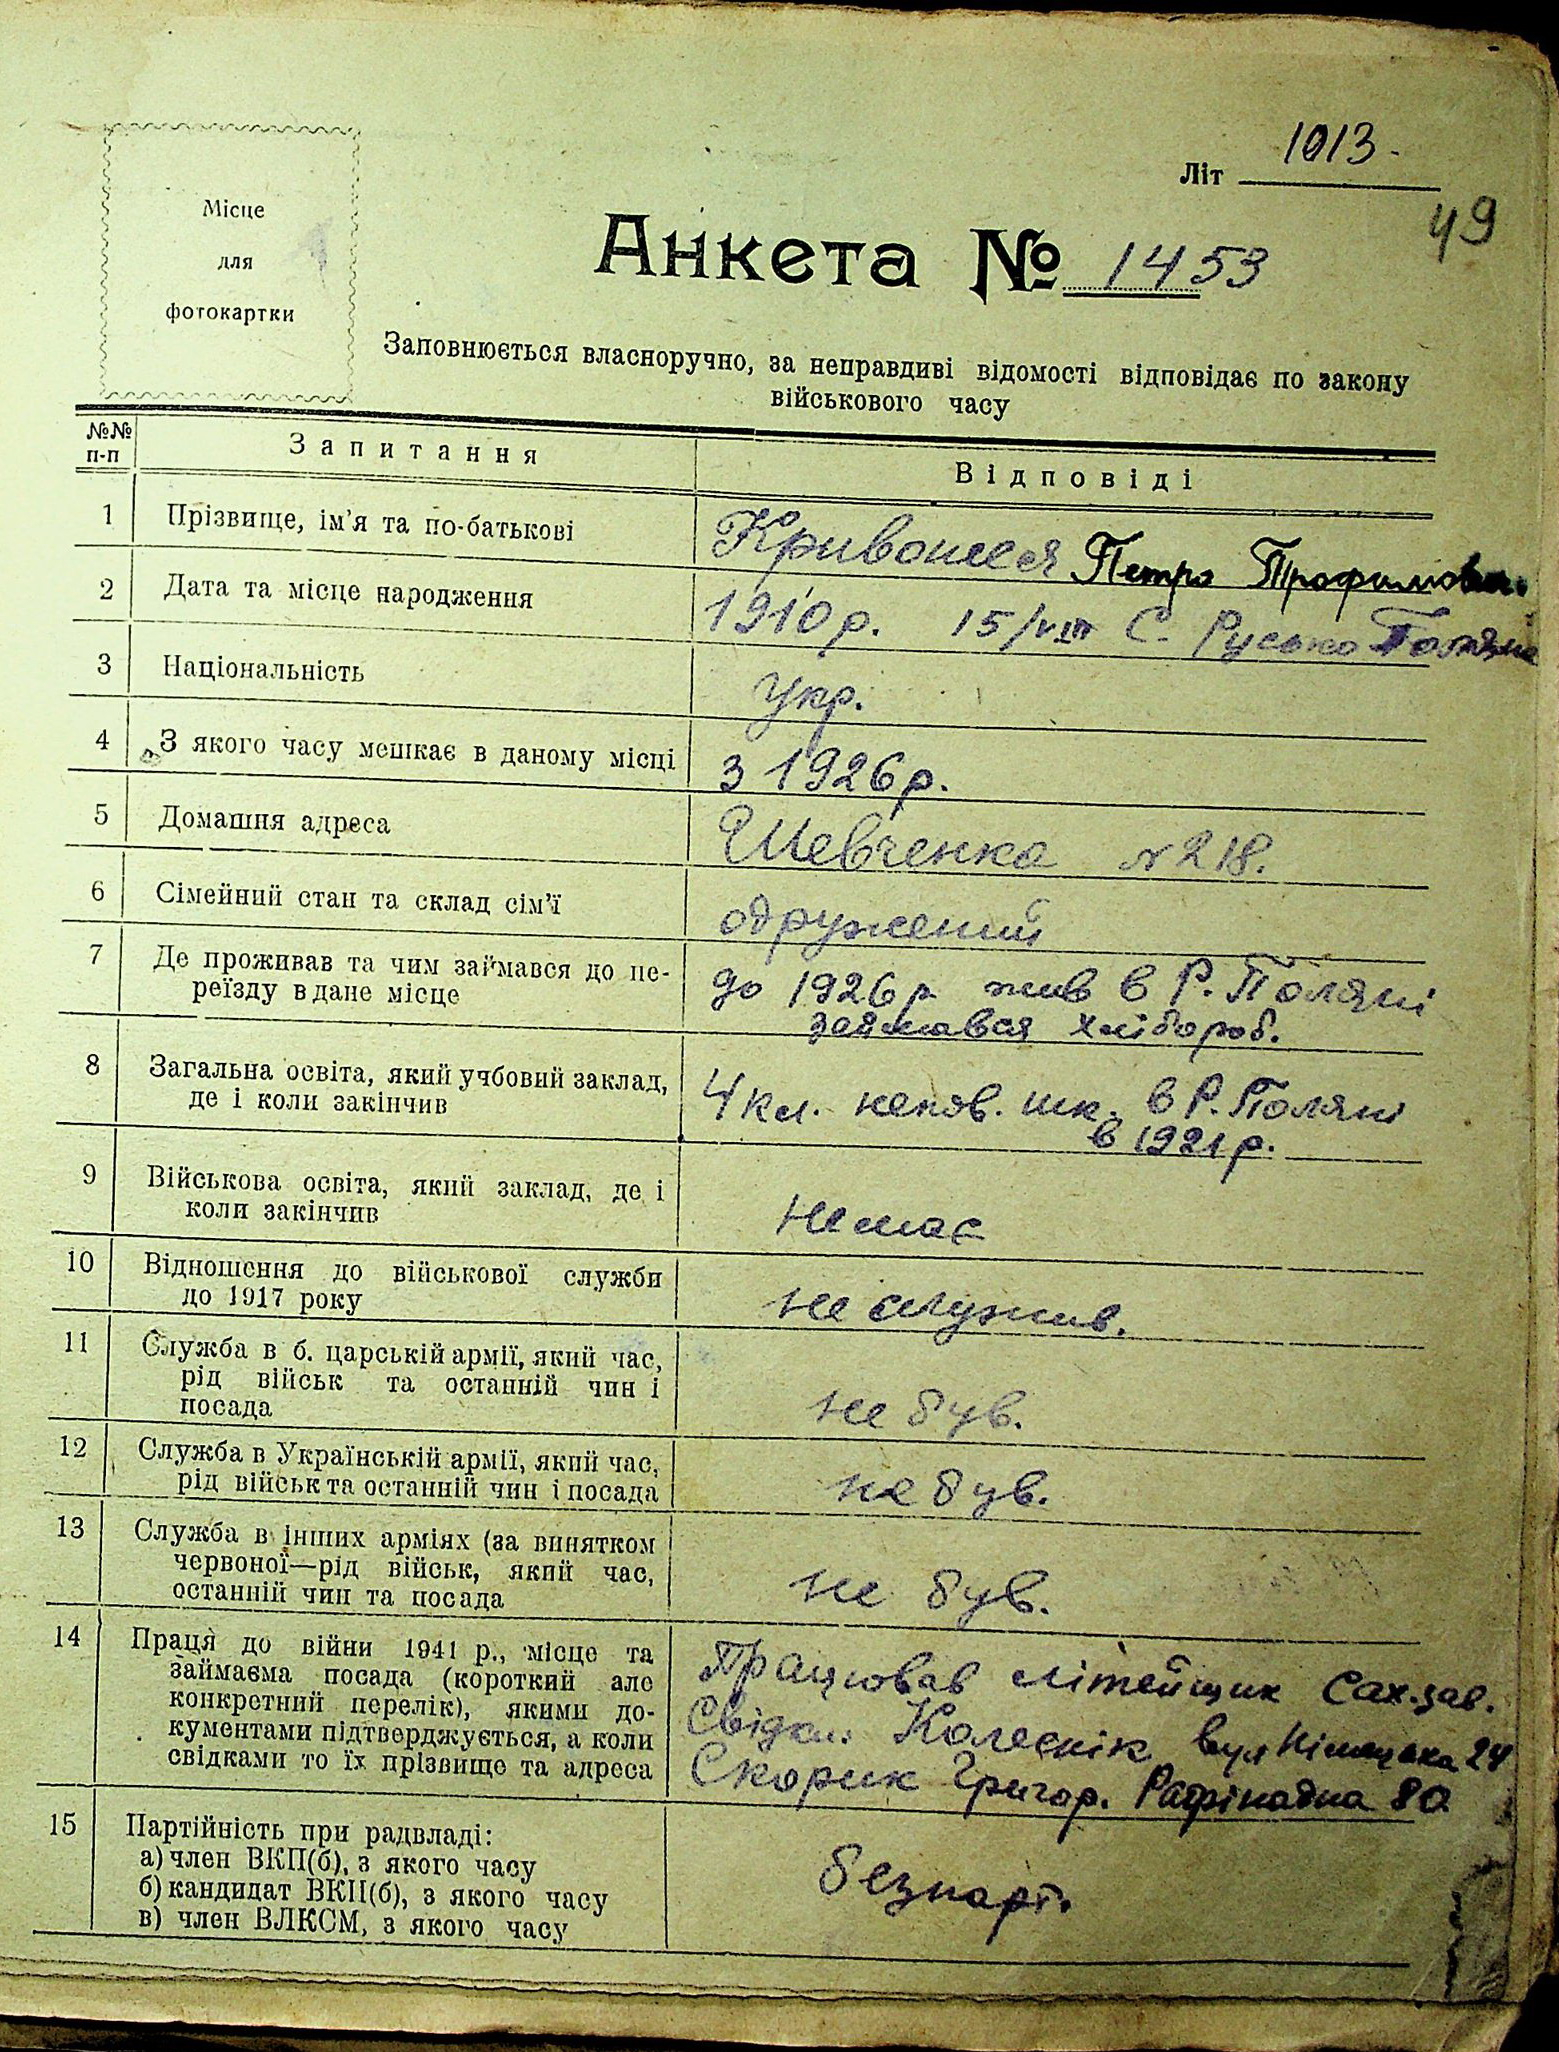 Місце
для
фотокартки
Літ 1013.
49
Анкета № 1453
Заповнюється власноручно, за неправдиві відомості відповідає по закону
військового часу
№№ п-п Запитання Відповіді
1 Прізвище, ім'я та по-батькові Кривошея Петро Трофимович.
2 Дата та місце народження 1910 р. 15/VIII С. Русько Поляна
3 Національність Укр.
4 З якого часу мешкає в даному місці з 1926 р.
5 Домашня адреса Шевченка № 218.
6 Сімейний стан та склад сім'ї одружений
7 Де проживав та чим займався до пе-
реїзду в дане місце
до 1926 р. жив в Р. Поляні
займався хлібороб.
8 Загальна освіта, який учбовий заклад,
де і коли закінчив
4 кл. непов. шк. в Р. Поляні
в 1921 р.
9 Військова освіта, який заклад, де і
коли закінчив
немає
10 Відношення до військової служби
до 1917 року
не служив.
11 Служба в б. царській армії, який час,
рід військ та останній чин і
посада
не був.
12 Служба в Українській армії, який час,
рід військ та останній чин і посада
не був.
13 Служба в інших арміях (за винятком
червоної—рід військ, який час,
останній чин та посада
не був.
14 Праця до війни 1941 р., місце та
займаєма посада (короткий але
конкретний перелік), якими до-
кументами підтверджується, а коли
свідками то їх прізвище та адреса
Працював літейщик Сах.зав.
Свідки: Колеснік вул Німецька 24
Скорик Григор. Рафінадна 80
15 Партійність при радвладі:
а) член ВКП(б), з якого часу
б) кандидат ВКП(б), з якого часу
в) член ВЛКСМ, з якого часу
безпарт.